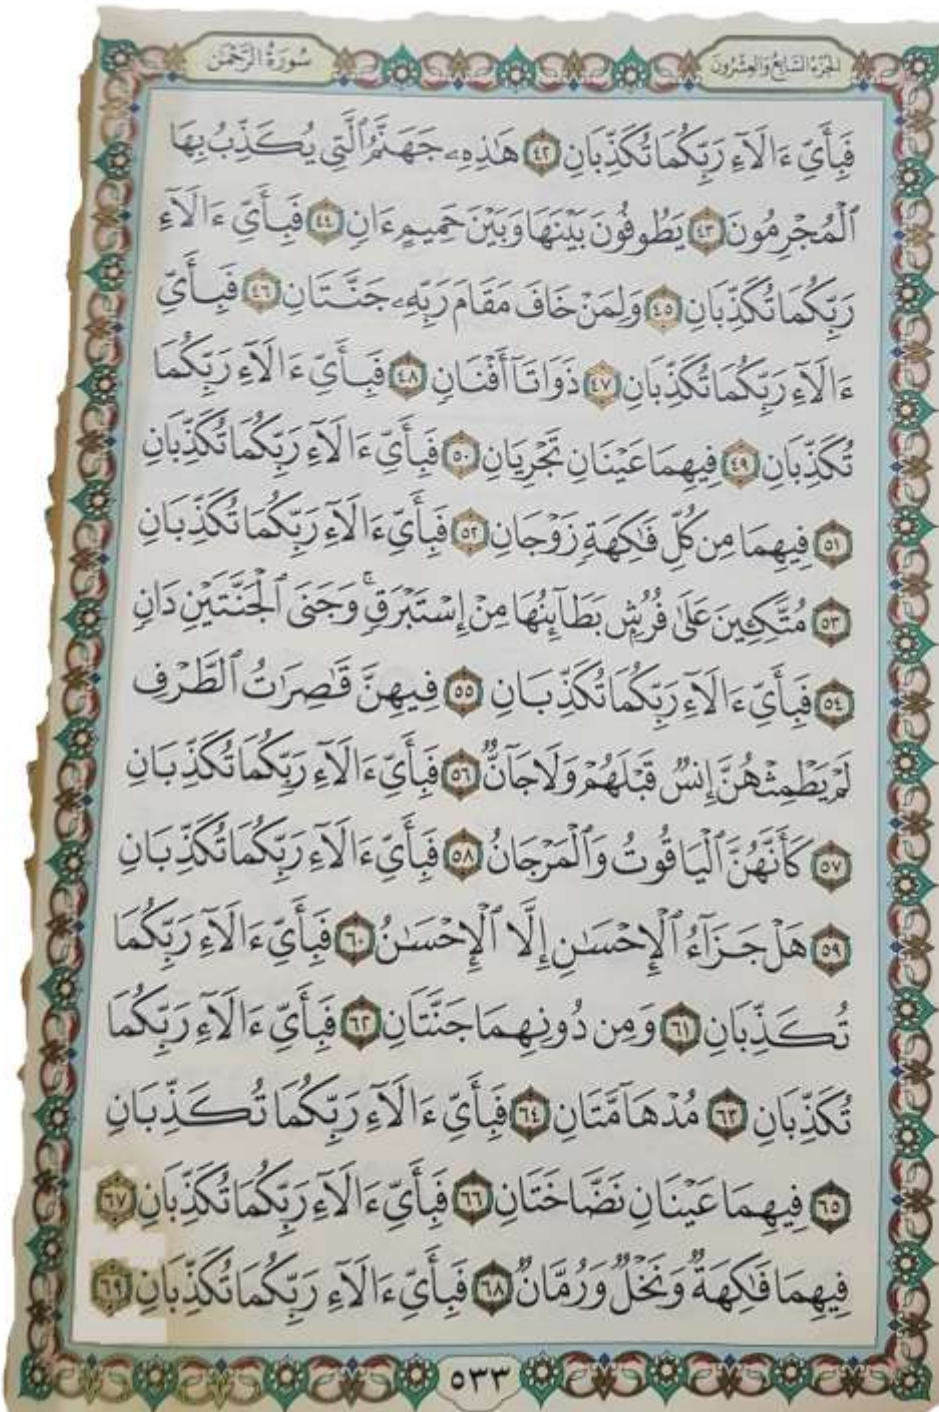 الجزء السابع والعشرون
سُورَةُ الرَّحْمٰن
فَبِأَيِّ ءَالَآءِ رَبِّكُمَا تُكَذِّبَانِ ٤٢ هَٰذِهِۦ جَهَنَّمُ ٱلَّتِي يُكَذِّبُ بِهَا
ٱلْمُجْرِمُونَ ٤٣ يَطُوفُونَ بَيْنَهَا وَبَيْنَ حَمِيمٍ ءَانٍ ٤٤ فَبِأَيِّ ءَالَآءِ
رَبِّكُمَا تُكَذِّبَانِ ٤٥ وَلِمَنْ خَافَ مَقَامَ رَبِّهِۦ جَنَّتَانِ ٤٦ فَبِأَيِّ
ءَالَآءِ رَبِّكُمَا تُكَذِّبَانِ ٤٧ ذَوَاتَآ أَفْنَانٍ ٤٨ فَبِأَيِّ ءَالَآءِ رَبِّكُمَا
تُكَذِّبَانِ ٤٩ فِيهِمَا عَيْنَانِ تَجْرِيَانِ ٥٠ فَبِأَيِّ ءَالَآءِ رَبِّكُمَا تُكَذِّبَانِ
٥١ فِيهِمَا مِن كُلِّ فَٰكِهَةٍ زَوْجَانِ ٥٢ فَبِأَيِّ ءَالَآءِ رَبِّكُمَا تُكَذِّبَانِ
٥٣ مُتَّكِـِٔينَ عَلَىٰ فُرُشٍۭ بَطَآئِنُهَا مِنْ إِسْتَبْرَقٍۚ وَجَنَى ٱلْجَنَّتَيْنِ دَانٍ
٥٤ فَبِأَيِّ ءَالَآءِ رَبِّكُمَا تُكَذِّبَانِ ٥٥ فِيهِنَّ قَٰصِرَٰتُ ٱلطَّرْفِ
لَمْ يَطْمِثْهُنَّ إِنسٌ قَبْلَهُمْ وَلَا جَآنٌّ ٥٦ فَبِأَيِّ ءَالَآءِ رَبِّكُمَا تُكَذِّبَانِ
٥٧ كَأَنَّهُنَّ ٱلْيَاقُوتُ وَٱلْمَرْجَانُ ٥٨ فَبِأَيِّ ءَالَآءِ رَبِّكُمَا تُكَذِّبَانِ
٥٩ هَلْ جَزَآءُ ٱلْإِحْسَٰنِ إِلَّا ٱلْإِحْسَٰنُ ٦٠ فَبِأَيِّ ءَالَآءِ رَبِّكُمَا
تُكَذِّبَانِ ٦١ وَمِن دُونِهِمَا جَنَّتَانِ ٦٢ فَبِأَيِّ ءَالَآءِ رَبِّكُمَا
تُكَذِّبَانِ ٦٣ مُدْهَآمَّتَانِ ٦٤ فَبِأَيِّ ءَالَآءِ رَبِّكُمَا تُكَذِّبَانِ
٦٥ فِيهِمَا عَيْنَانِ نَضَّاخَتَانِ ٦٦ فَبِأَيِّ ءَالَآءِ رَبِّكُمَا تُكَذِّبَانِ ٦٧
فِيهِمَا فَٰكِهَةٌ وَنَخْلٌ وَرُمَّانٌ ٦٨ فَبِأَيِّ ءَالَآءِ رَبِّكُمَا تُكَذِّبَانِ ٦٩
٥٣٣